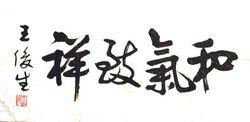 和氣致祥
王俊生